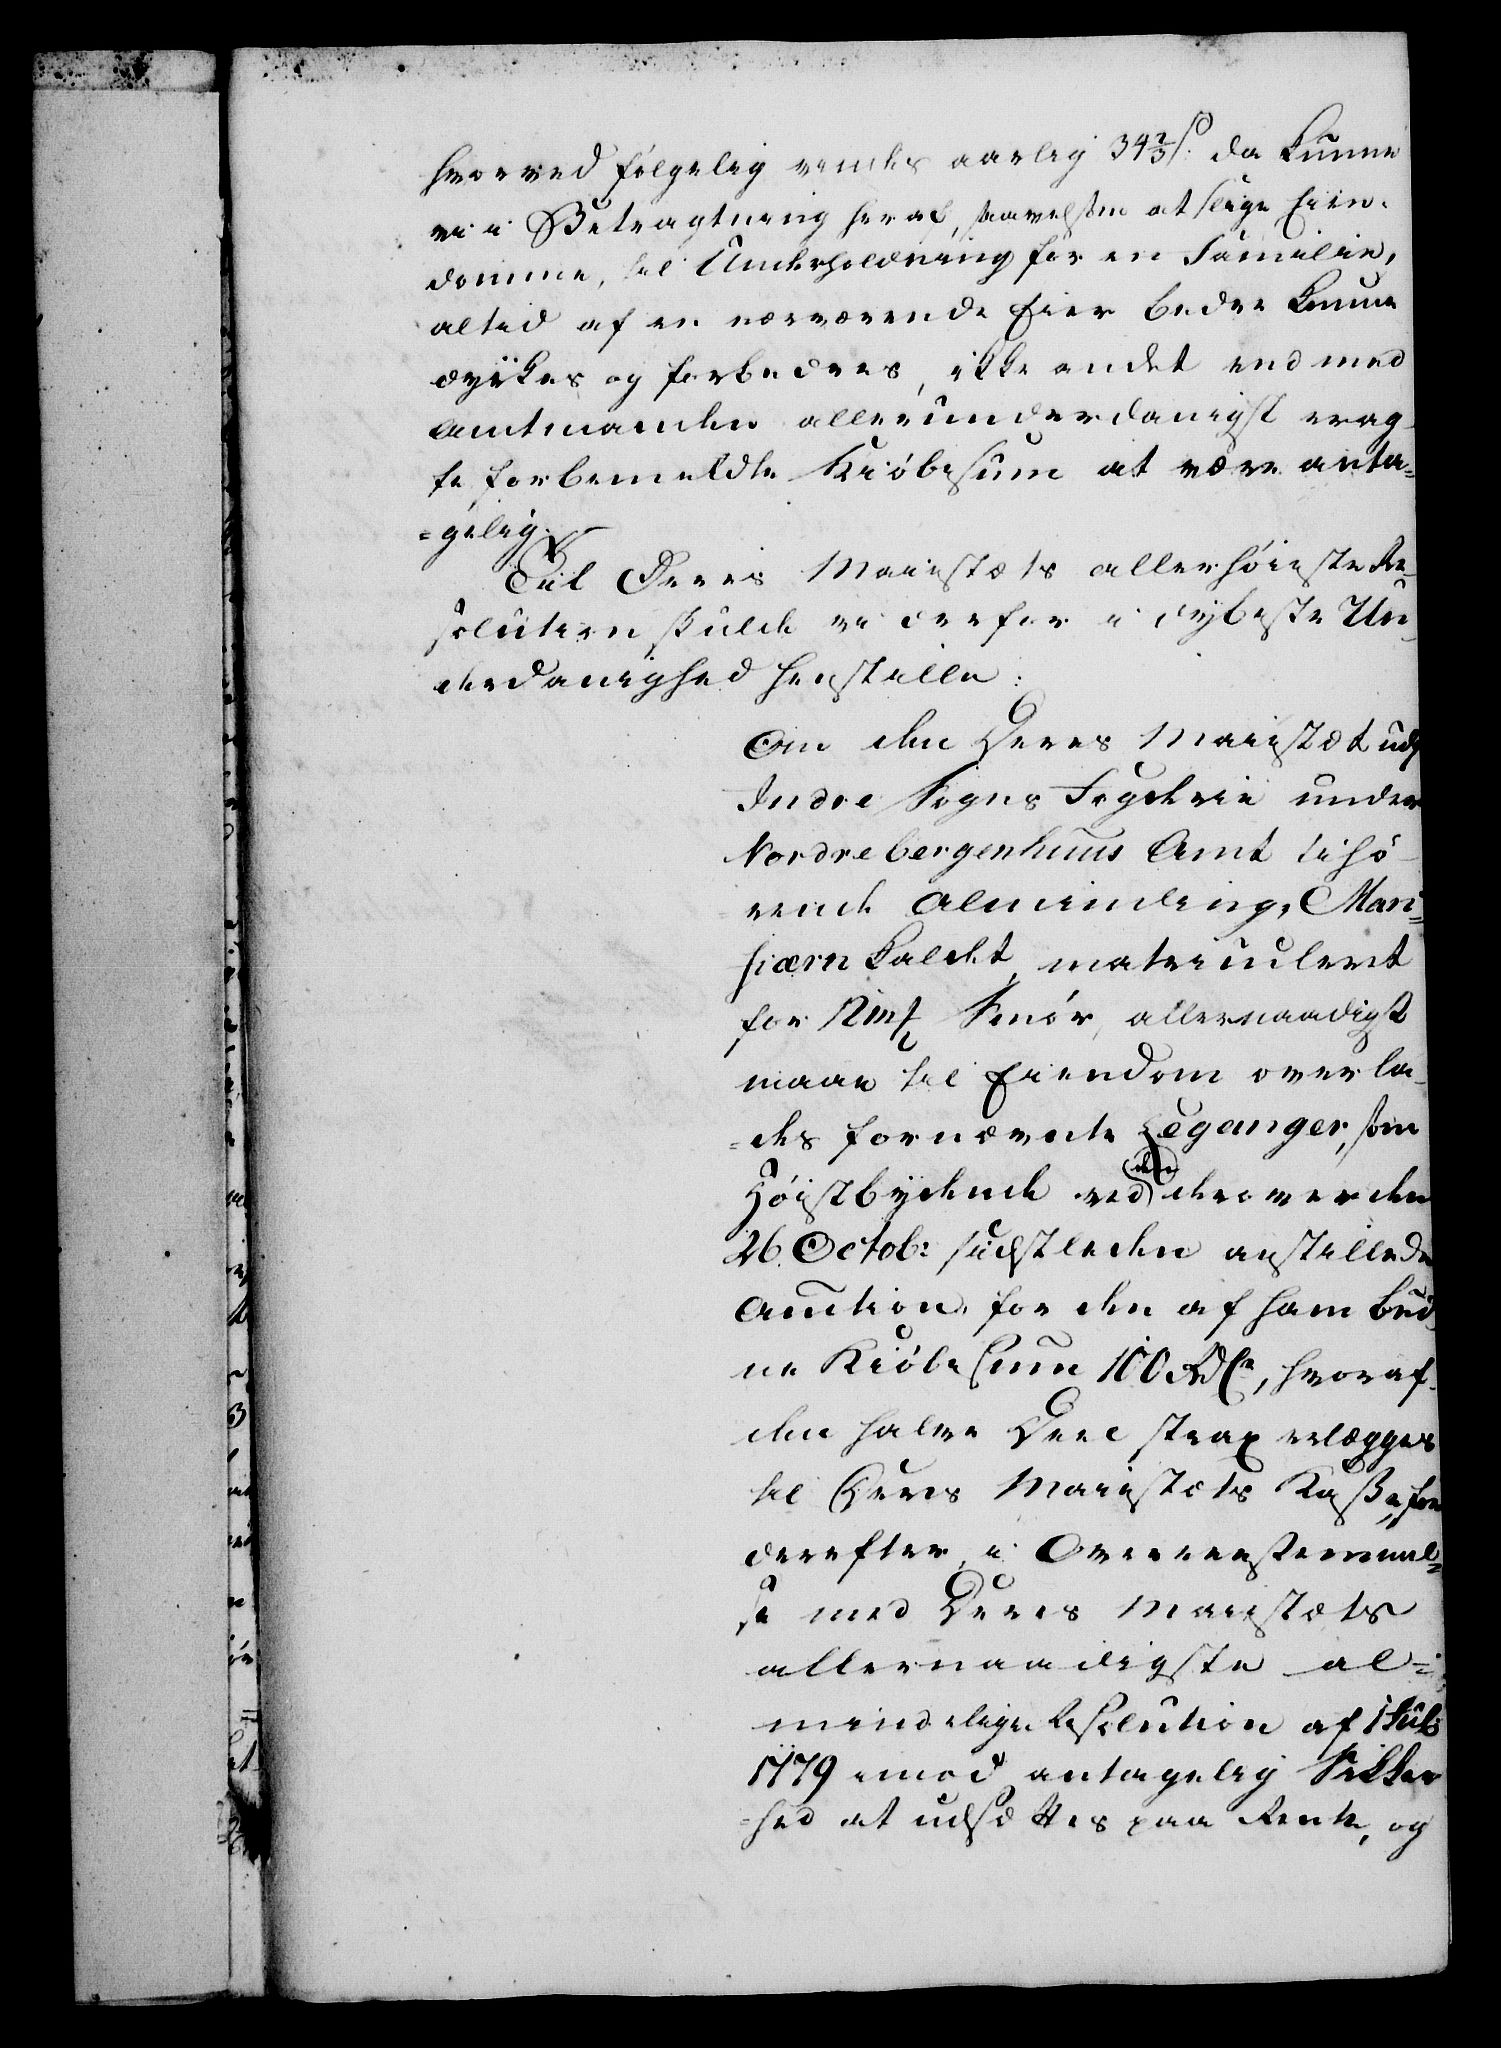 hvorved følgelig vindes aarlig 34⅔ ß. da kunne
vi i Betragtning heraf, saavelsom at slige Eien-
domme, til Underholdning for en Familie,
altid af en nærværende Eier bedre kunne
dyrkes og forbedres, ikke andet end med
Amtmanden allerunderdanigst erag-
te forbemeldte Kiøbesum at være anta-
=gelig.
Til Deres Maiestæts allerhøieste Re-
solution skulde vi derfor i dybeste Un-
derdanighed henstille:
Om den Deres Maiestæt udj
Indre Sogns Fogderie under
Nordrebergenhuus Amt tilhø-
rende Alminding, Mari-
fiærn kaldet, matriculeret
for 12 mk Smør, allernaadigst
maae til Eiendom overla-
=des fornævnte Leganger, som
Høistbydende ved den derover den
26 Octob: sidstleden anstillede
Auction, for den af ham bud-
ne Kiøbe Sum 100 Rdlr, hvoraf
den halve Deel strax erlægges
til Deres Maiestæts Kasse, for
derefter, i Overeenstemmel-
se med Deres Maiestæts
allernaadigste al-
mindelige Resolution af 1 Jul:
1779 imod antagelig Sikker
=hed at udsættes paa Rente, og